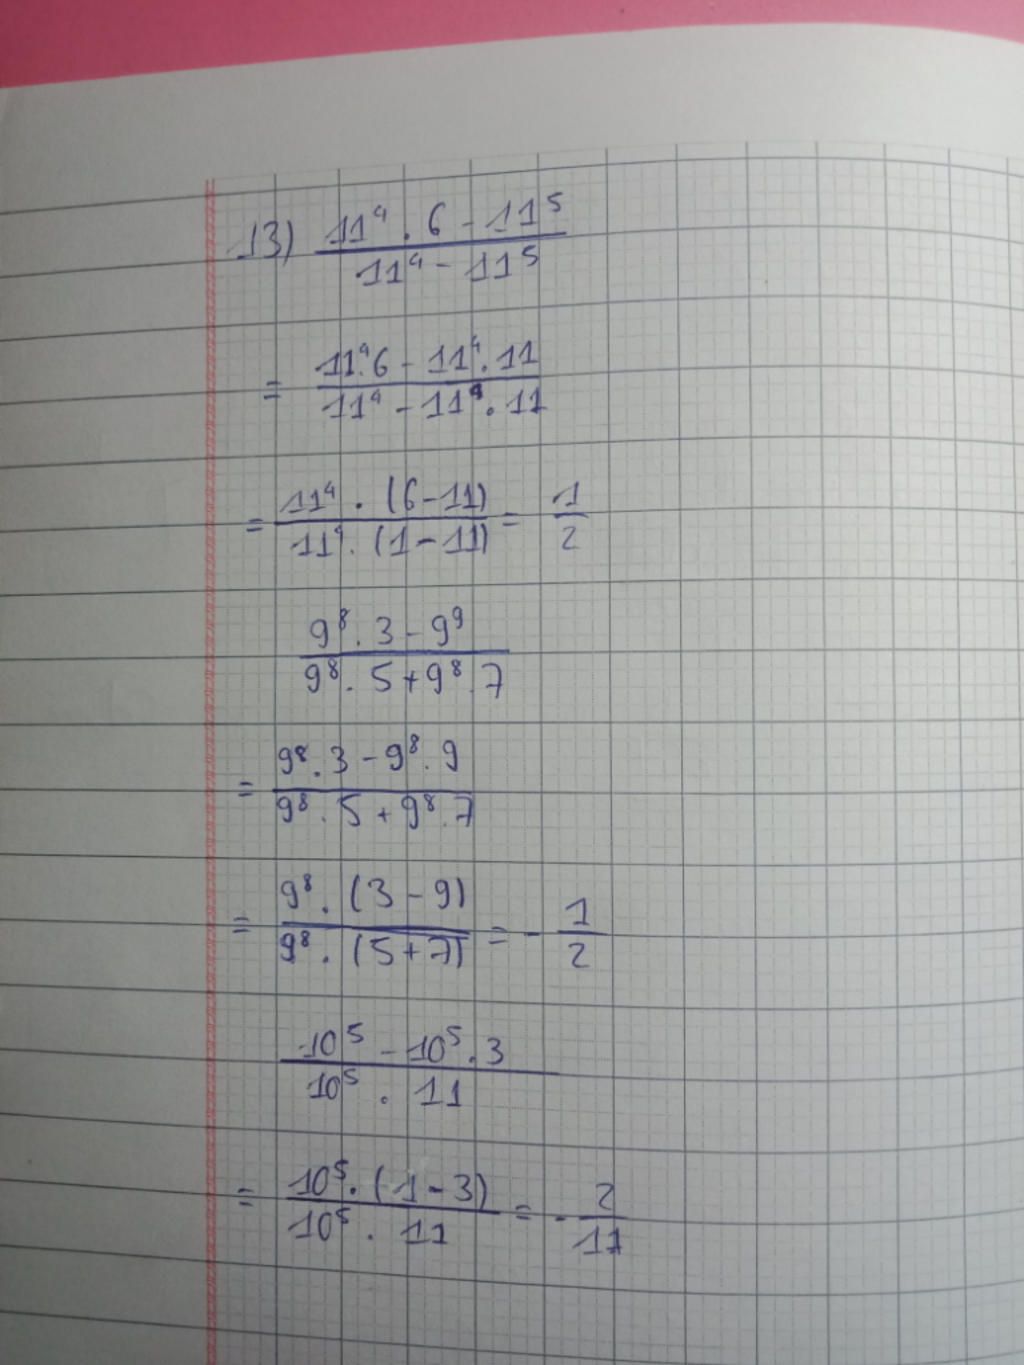 13) 11⁴ . 6 - 11⁵
11⁴ - 11⁵
= 11⁴.6 - 11⁴.11
11⁴ - 11⁴.11
= 11⁴ . (6-11) = 1
11⁴. (1-11) 2
9⁸ . 3 - 9⁹
9⁸ . 5 + 9⁸ . 7
= 9⁸ . 3 - 9⁸ . 9
9⁸ . 5 + 9⁸ . 7
= 9⁸ . (3 - 9) = - 1
9⁸ . (5+7) 2
10⁵ - 10⁵ . 3
10⁵ . 11
= 10⁵. (1-3) = - 2
10⁵ . 11 11